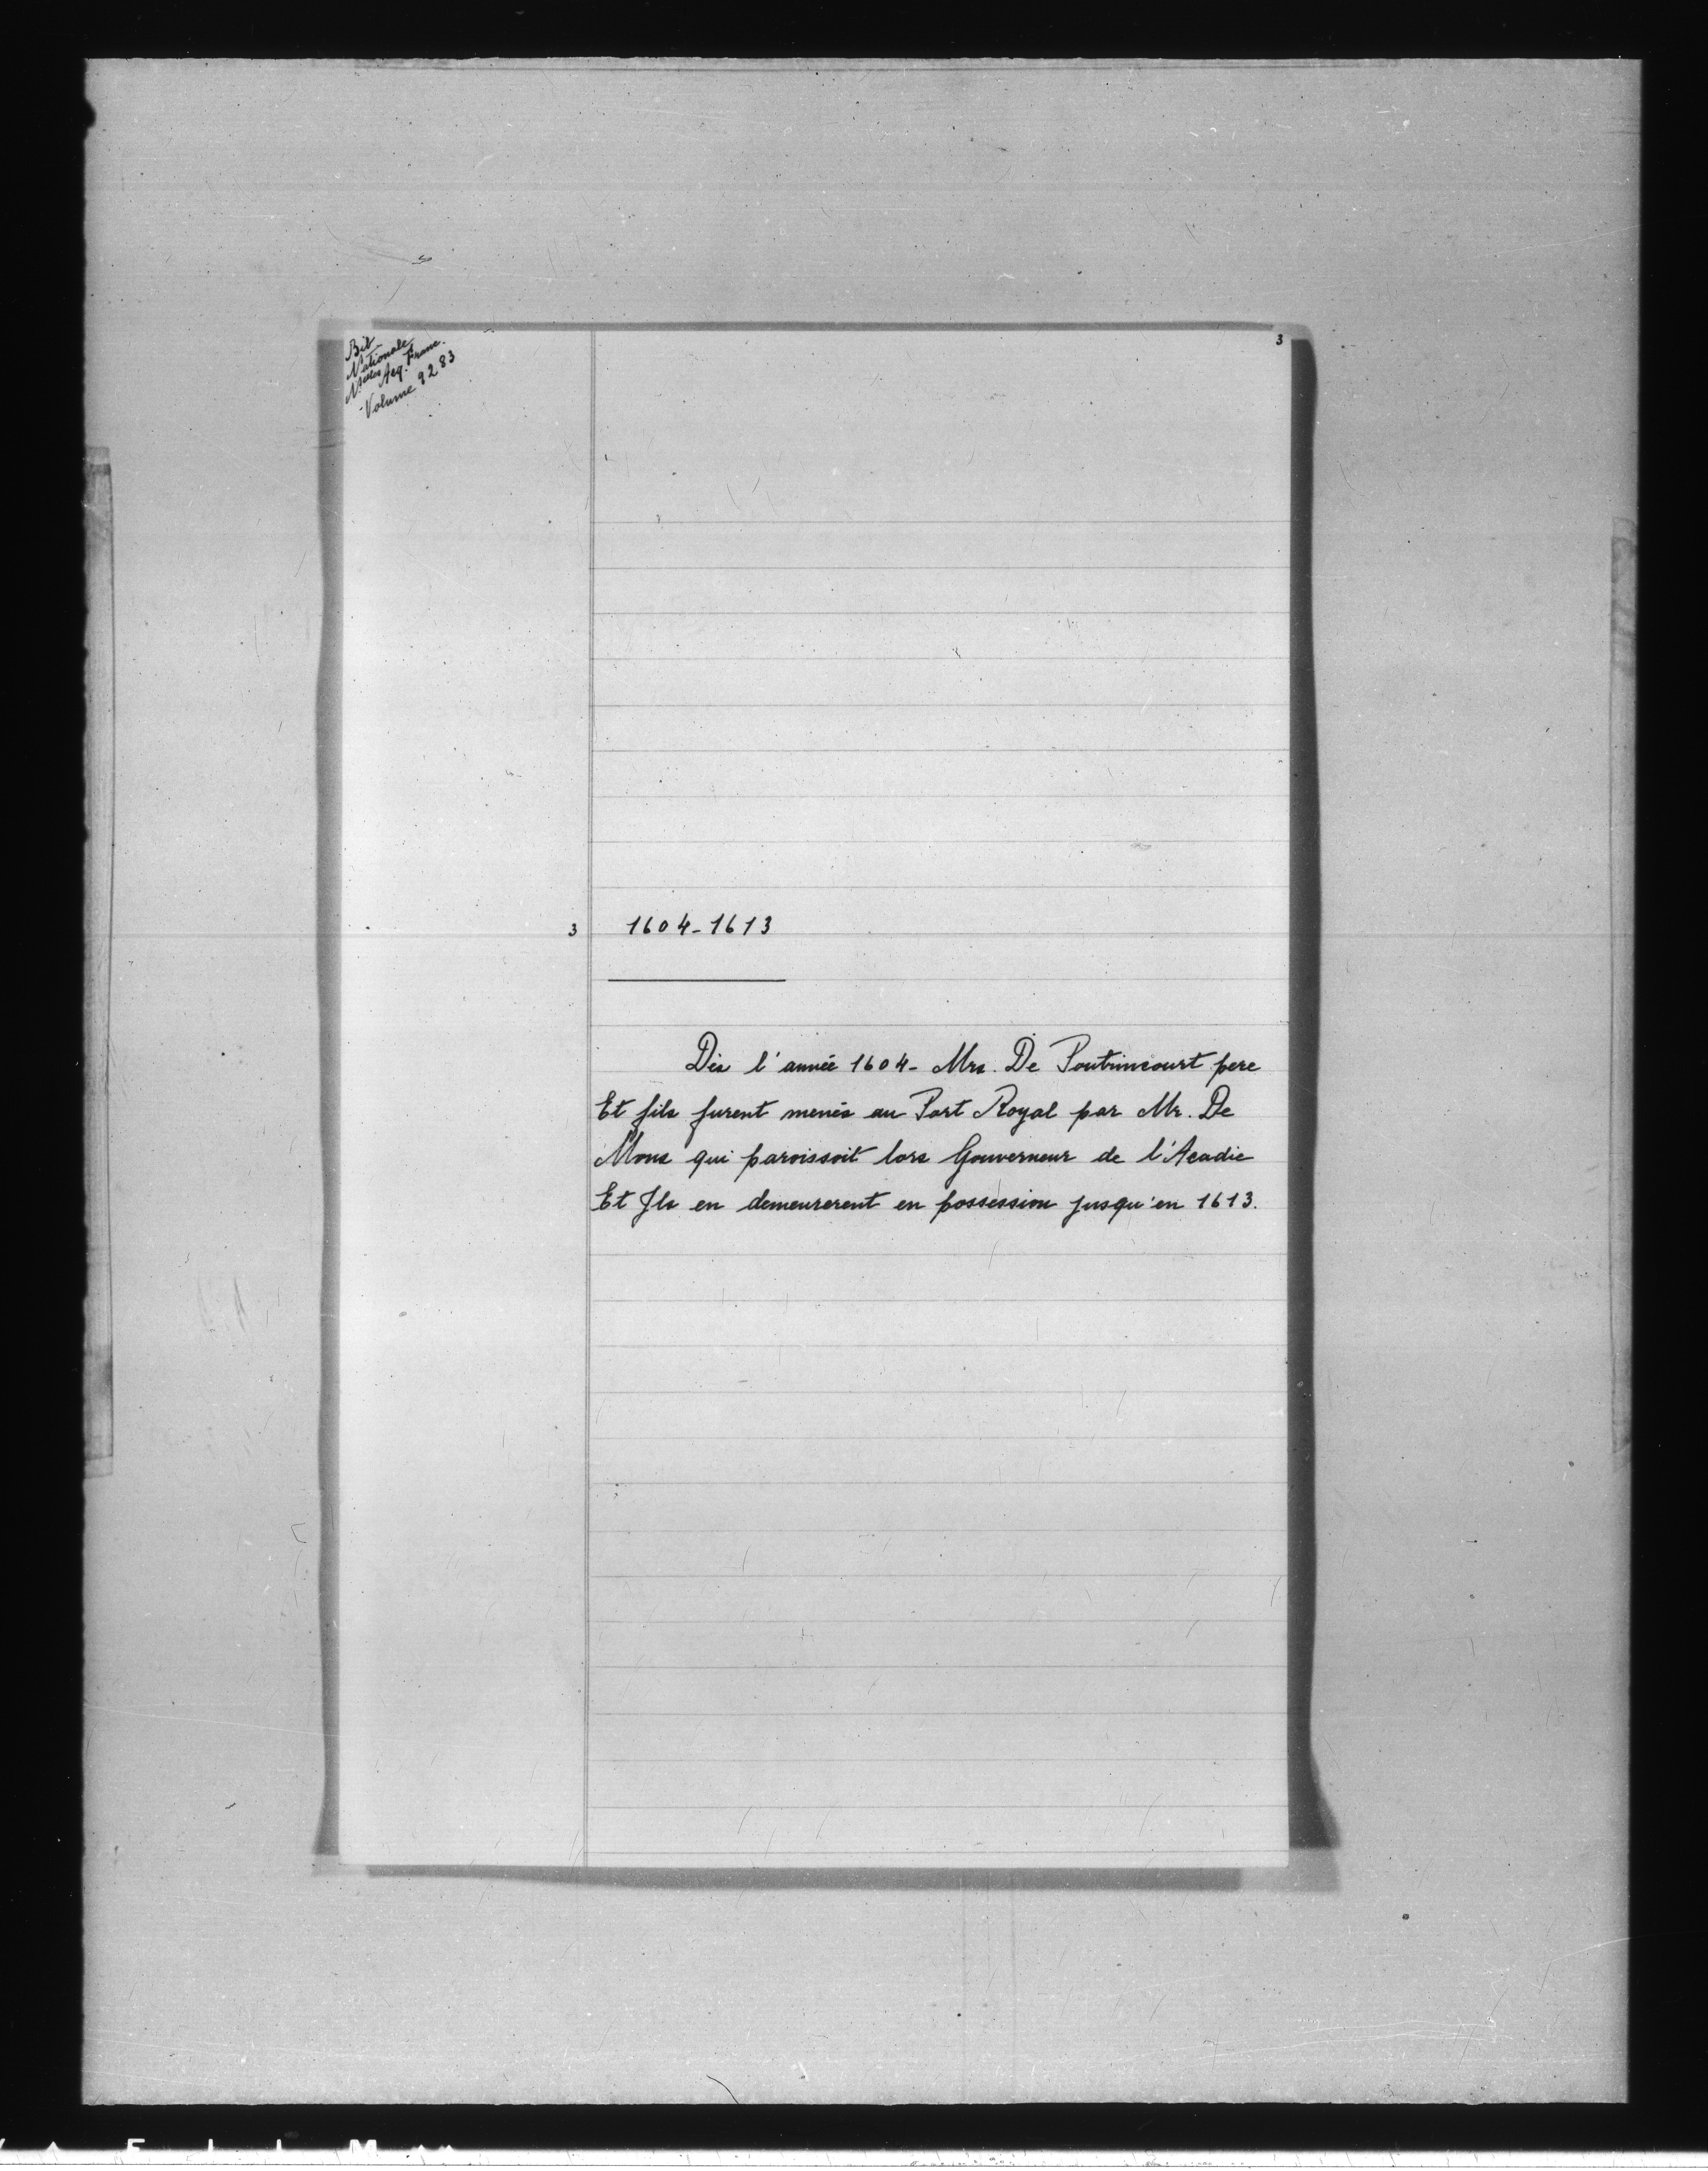 Bib
Nationale
Nlles Acq. Franc.
Volume 9283
3
3 1604-1613
Dès l'année 1604- Mrs. De Poutrincourt pere
Et fils furent menés au Port Royal par Mr. De
Mons qui paroissoit lors Gouverneur de l'Acadie
Et Ils en demeurerent en possession jusqu'en 1613.